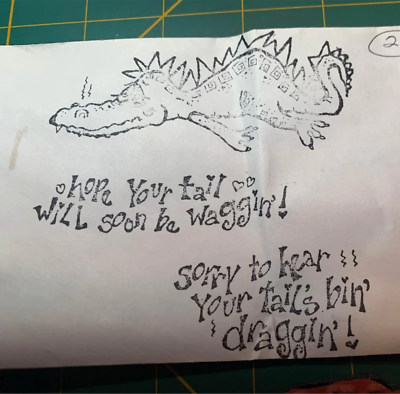 2
hope your tail
will soon be waggin'!
sorry to hear
your tail's bin'
draggin'!